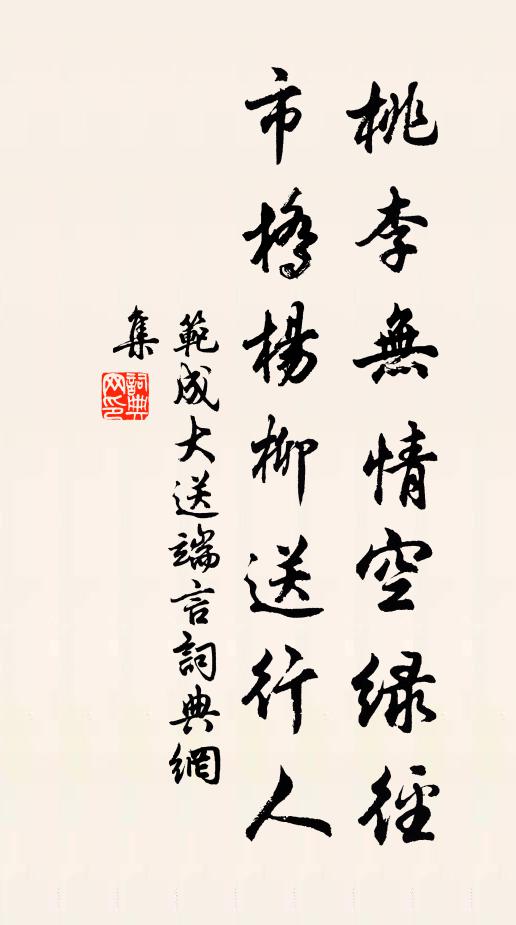 桃李無情空綠徑
市橋楊柳送行人
範成大送端言詞典網
集
詞典網印